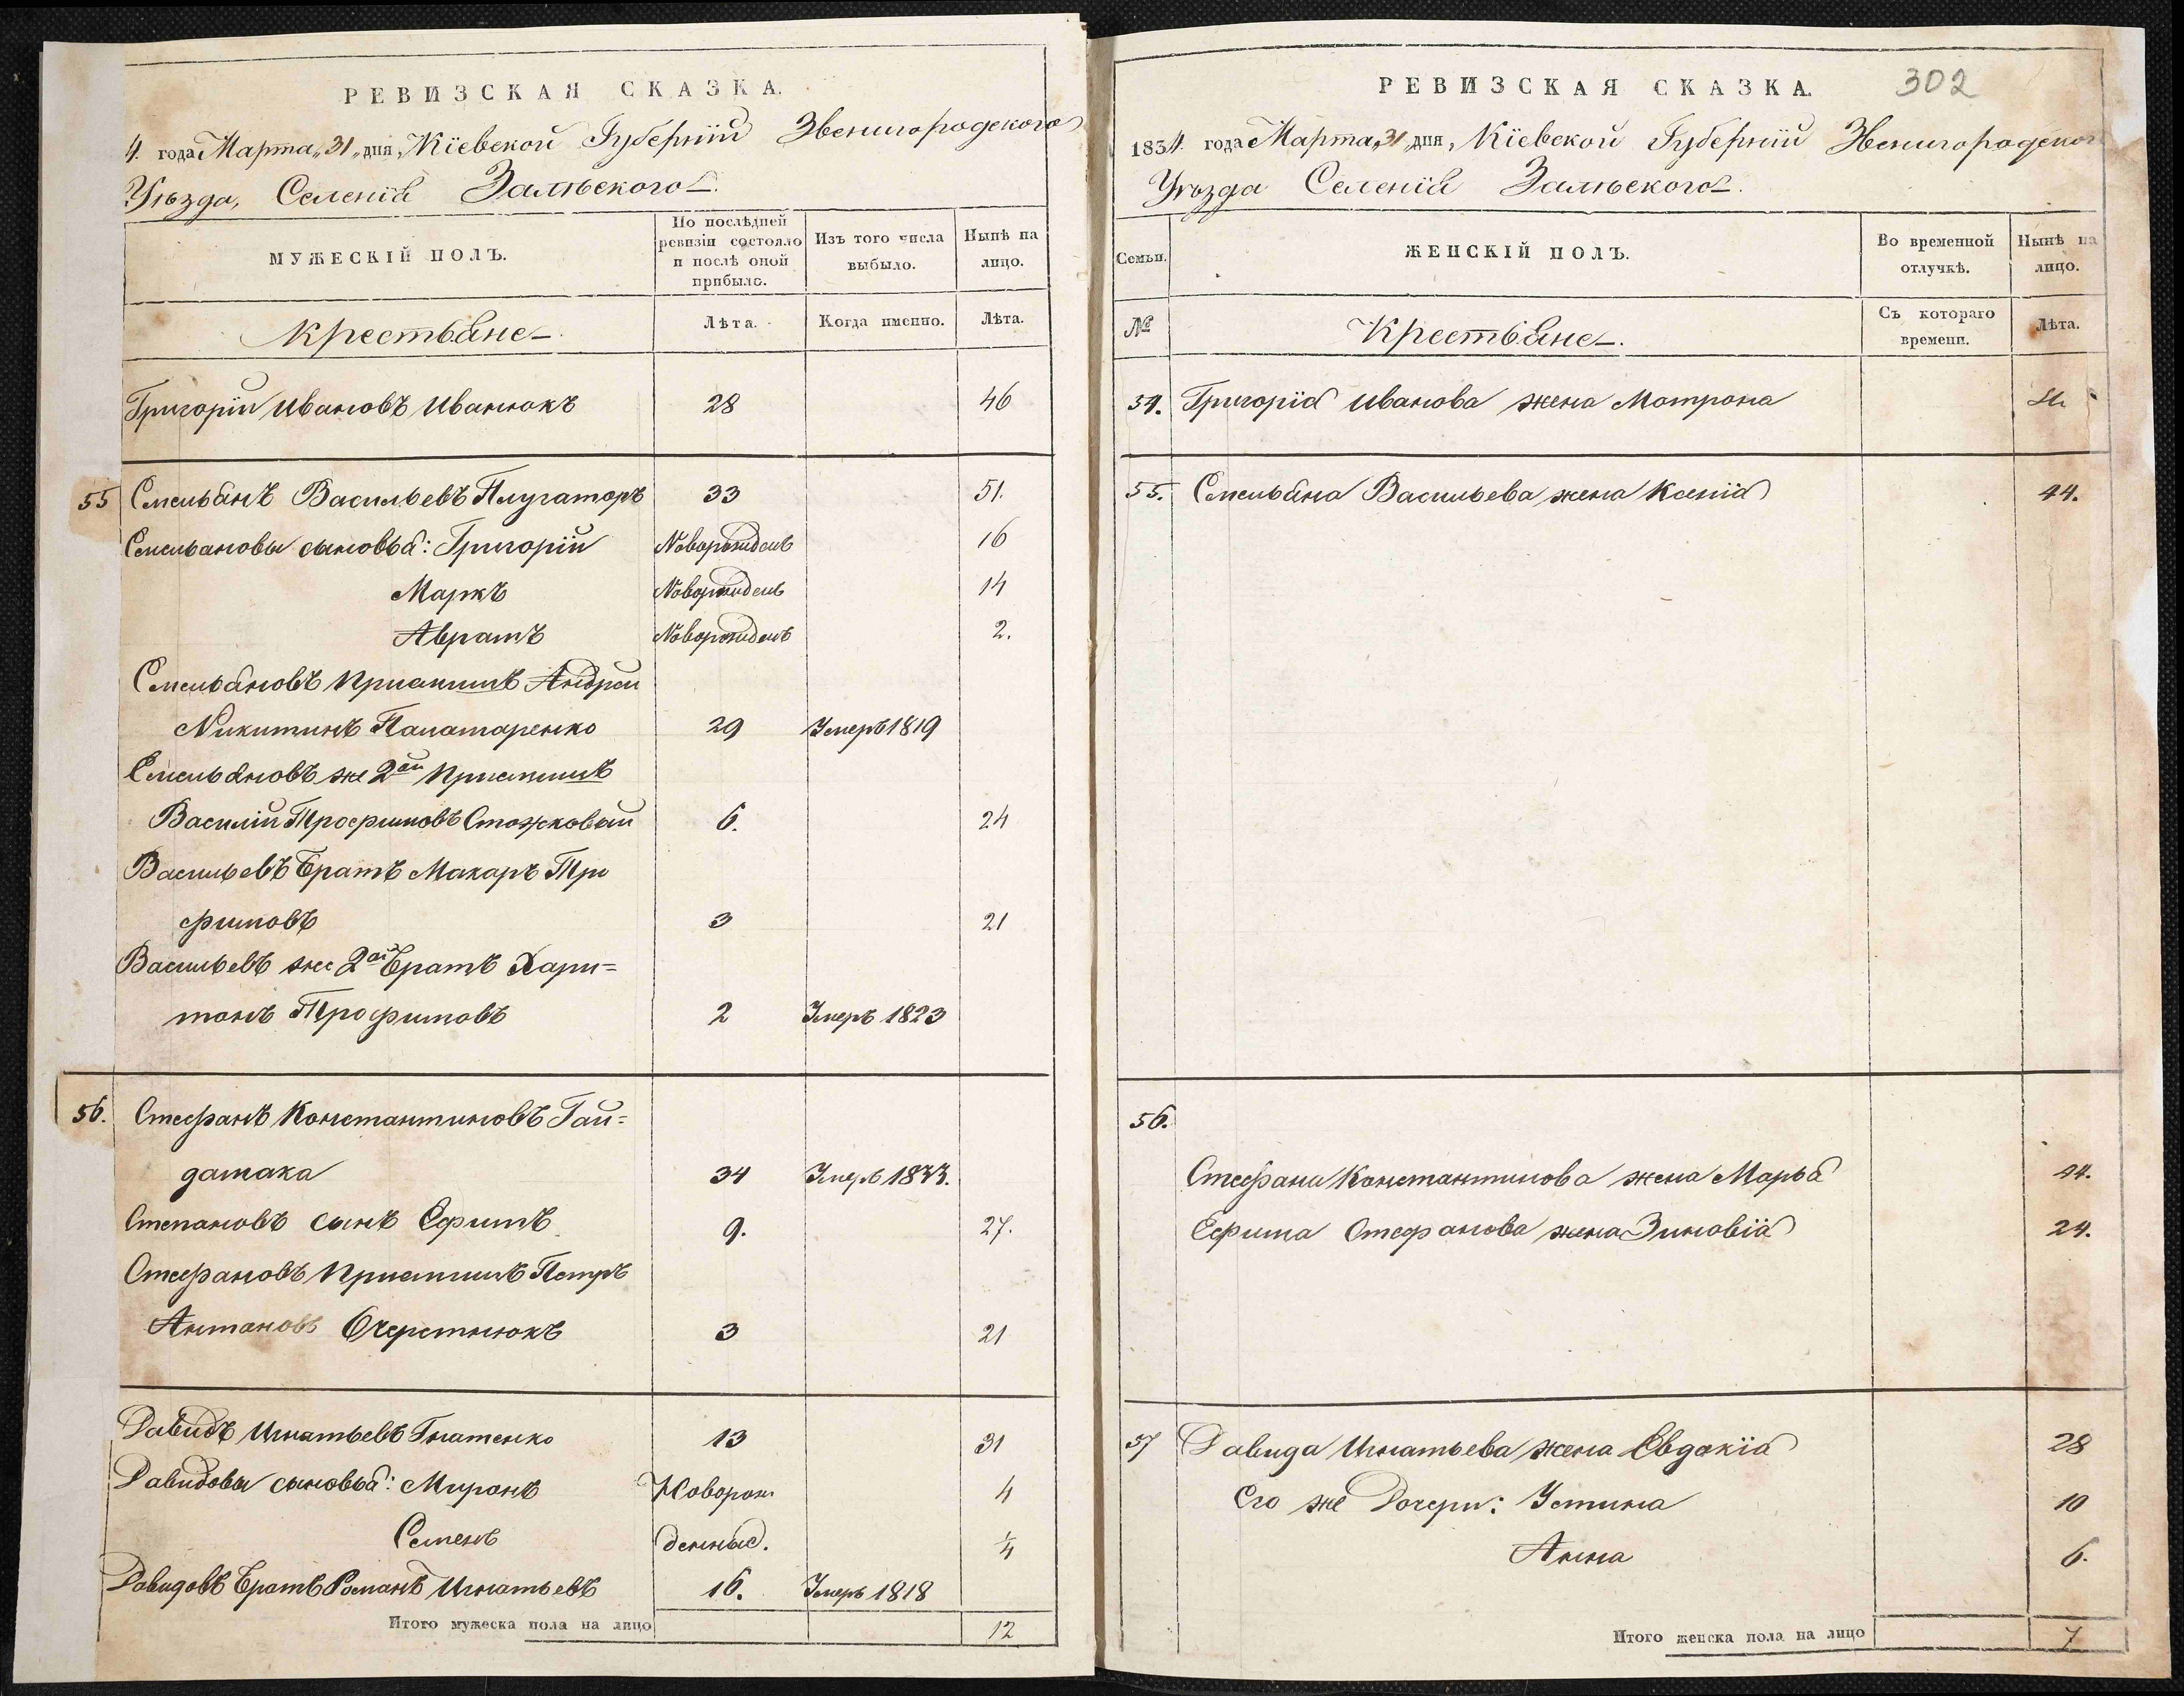 РЕВИЗСКАЯ СКАЗКА.
4. года Марта „31„ дня, Кіевской Губерніи Звенигородского
Уѣзда, Селенія Залѣского
МУЖЕСКІЙ ПОЛЪ.
По послѣдней ревизіи состояло и послѣ оной прибыло.
Изъ того числа выбыло.
Нынѣ на лицо.
Крестьяне
Лѣта.
Когда именно.
Лѣта.
Григорій Ивановъ Иванюкъ 28 46
55 Емельянъ Васильевъ Плугаторъ 33 51.
Емельяновы сыновья: Григорій Новорожденъ 16
Маркъ Новорожденъ 14
Аврамъ Новорожденъ 2.
Емельяновъ Приемышъ Андрей
Никитинъ Паламаренко 29 Умеръ 1819
Емельяновъ же 2ой Приемышъ
Василій Трофимовъ Стожковый 6. 24
Васильевъ Братъ Макаръ Тро
фимовъ 3 21
Васильевъ же 2ой Братъ Хари=
тонъ Трофимовъ 2 Умеръ 1823
56. Стефанъ Константиновъ Гай=
дамака 34 Умеръ 1833.
Степановъ сынъ Ефимъ 9. 27.
Стефановъ Приемышъ Петръ
Антоновъ Очеретнюкъ 3 21
Давидъ Игнатьевъ Гнатенко 13 31
Давидовы сыновья: Миронъ Новорож 4
Семенъ денные. 1/4
Давидовъ Братъ Романъ Игнатьевъ 16. Умеръ 1818
Итого мужеска пола на лицо 12
РЕВИЗСКАЯ СКАЗКА. 302
1834. года Марта „31 дня, Кіевской Губерніи Звенигородског
Уѣзда Селенія Залѣского.
Семьи.
ЖЕНСКІЙ ПОЛЪ.
Во временной отлучкѣ.
Нынѣ на лицо.
№
Крестьяне.
Съ котораго времени.
Лѣта.
54. Григорія Иванова жена Мотрона
55. Емельяна Васильева жена Ксенія 44.
56.
Стефана Константинова жена Марья 44.
Ефима Стефанова жена Зиновія 24.
57 Давида Игнатьева жена Евдокія 28
Его же Дочери: Устина 10
Анна 6.
Итого женска пола на лицо 7